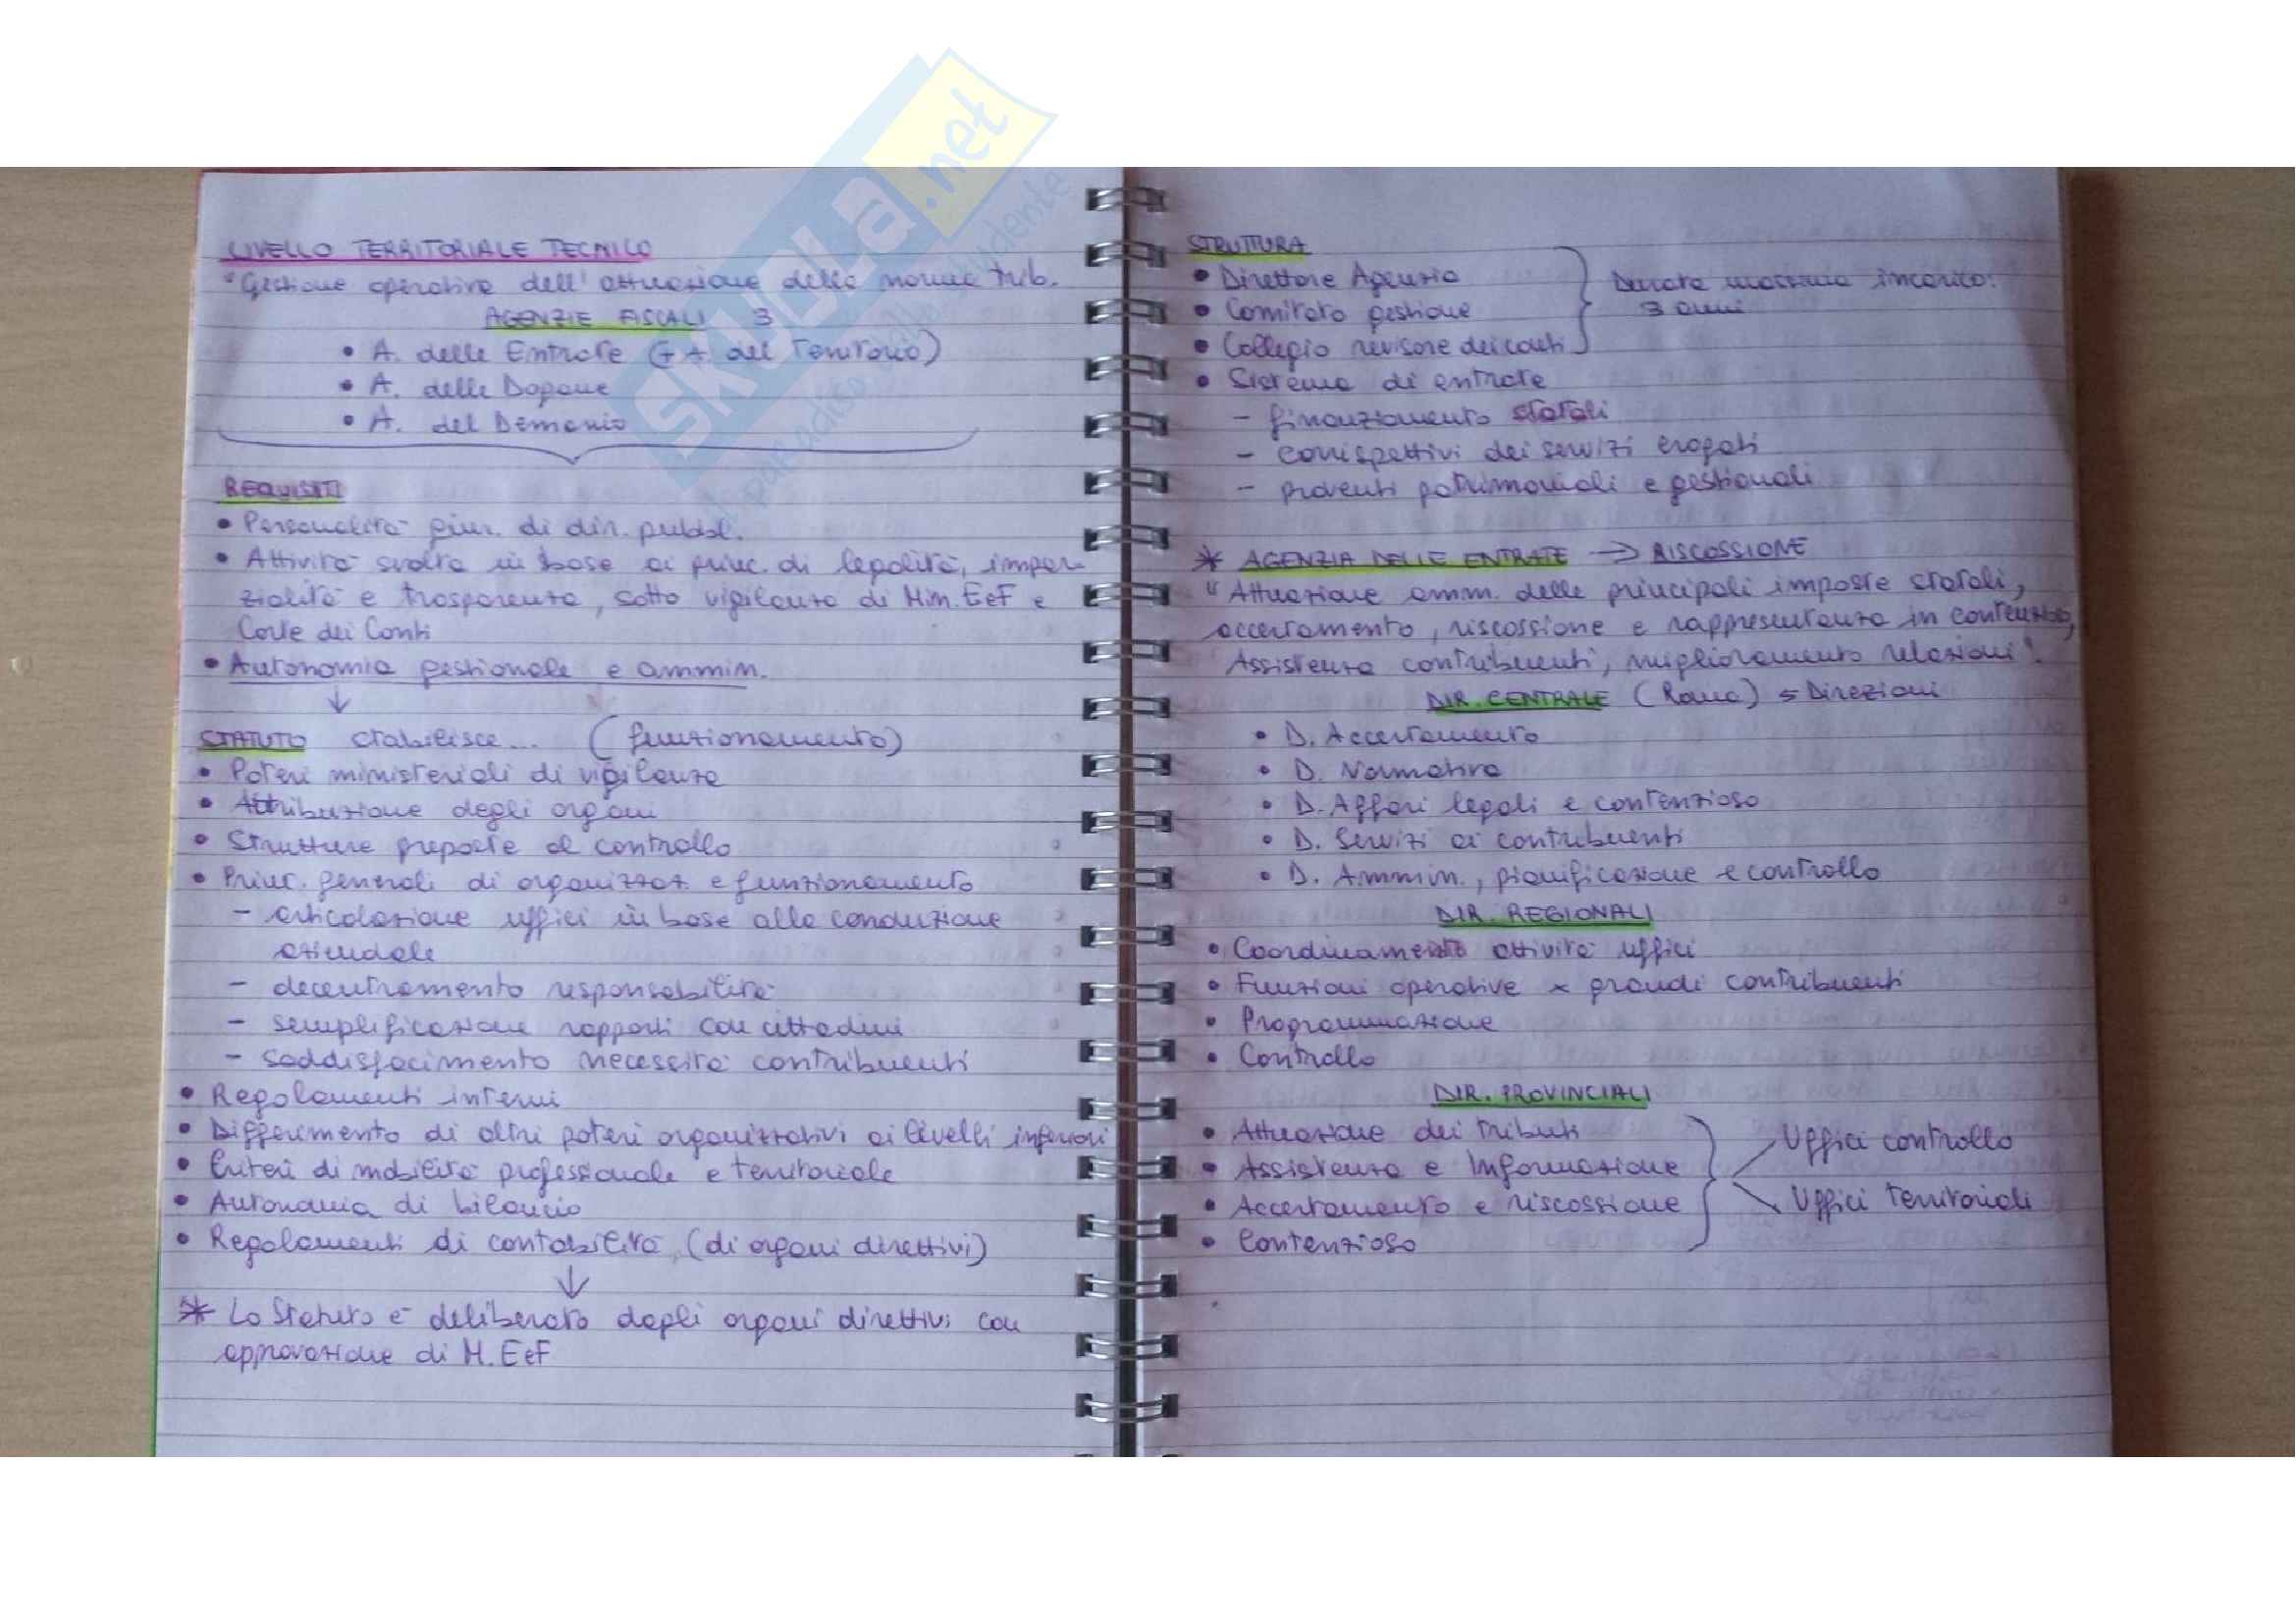 LIVELLO TERRITORIALE TECNICO
"Gestione operativa dell'attuazione delle norme trib.
AGENZIE FISCALI 3
• A. delle Entrate (+ A. del Territorio)
• A. delle Dogane
• A. del Demanio
REQUISITI
• Personalità giur. di dir. pubbl.
• Attività svolta in base ai princ. di legalità, impar-
zialità e trasparenza, sotto vigilanza di Min. EeF e
Corte dei Conti
• Autonomia gestionale e ammin.
↓
STATUTO stabilisce... (funzionamento)
• Poteri ministeriali di vigilanza
• Attribuzione degli organi
• Strutture preposte al controllo
• Princ. generali di organizzaz. e funzionamento
- articolazione uffici in base alla conduzione
aziendale
- decentramento responsabilità
- semplificazione rapporti con cittadini
- soddisfacimento necessità contribuenti
• Regolamenti interni
• Differimento di altri poteri organizzativi ai livelli inferiori
• Criteri di mobilità professionale e territoriale
• Autonomia di bilancio
• Regolamenti di contabilità (di organi direttivi)
↓
* Lo Statuto è deliberato dagli organi direttivi con
approvazione di M. EeF
STRUTTURA
• Direttore Agenzia
• Comitato gestione
• Collegio revisore dei conti
Durata massima incarico:
3 anni
• Sistema di entrate
- finanziamento statali
- corrispettivi dei servizi erogati
- proventi patrimoniali e gestionali
* AGENZIA DELLE ENTRATE → RISCOSSIONE
"Attuazione amm. delle principali imposte statali,
accertamento, riscossione e rappresentanza in contenzioso,
Assistenza contribuenti, miglioramento relazioni".
DIR. CENTRALE (Roma) 5 Direzioni
• D. Accertamento
• D. Normativa
• D. Affari legali e contenzioso
• D. Servizi ai contribuenti
• D. Ammin., pianificazione e controllo
DIR. REGIONALI
• Coordinamento attività uffici
• Funzioni operative x grandi contribuenti
• Programmazione
• Controllo
DIR. PROVINCIALI
• Attuazione dei tributi
• Assistenza e Informazione
• Accertamento e riscossione
• Contenzioso
Uffici controllo
Uffici territoriali
SKUOLA.net